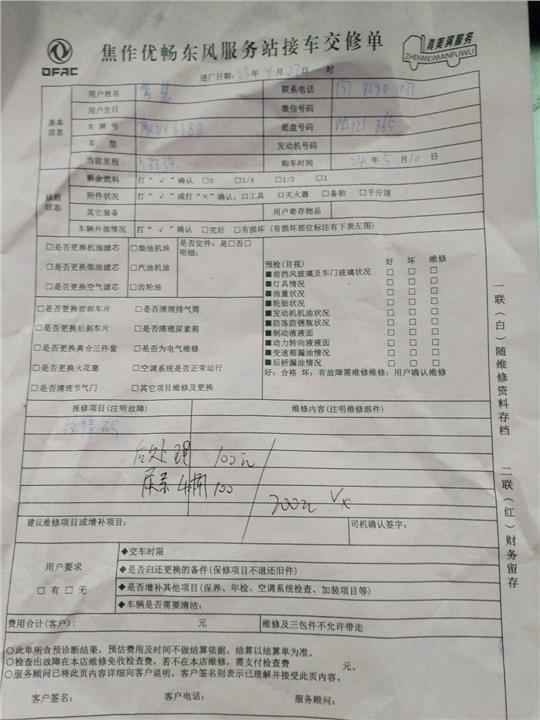 DFAC
焦作优畅东风服务站接车交修单
真美满服务
ZHENMEIMANFUWU
进厂日期：25年 月27日 时
基本信息
用户姓名 联系电话
用户生日 微信号码
车牌号 底盘号码
车型 发动机号码
当前里程 53334 购车时间 24年5月10日
车辆状态
剩余燃料 打“√”确认 □0 □1/4 □1/2 □1
附件状况 打“√”或打“×”确认：□工具 □灭火器 □备胎 □千斤顶
其它装备 用户寄存物品
车辆外部情况 打“√”确认 □完好 □有损坏（有损坏部位标注有下表左图）
□是否更换机油滤芯 □柴油机油 是否定件：是□否□
明细：
□是否更换柴油滤芯 □汽油机油
□是否更换空气滤芯 □齿轮油
□是否更换前刹车片 □是否清理排气筒
□是否更换后刹车片 □是否清理尿素箱
□是否更换离合三件套 □是否为电气维修
□是否更换火花塞 □空调系统是否正常运行
□是否清理节气门 □其它项目维修及更换
预检(目视) 好 坏 维修
■前挡风玻璃及车门玻璃状况 □ □ □
■灯具情况 □ □ □
■油量状况 □ □ □
■轮胎状况 □ □ □
■发动机机油状况 □ □ □
■防冻防锈瓶状况 □ □ □
■制动液液面 □ □ □
■动力转向液液面 □ □ □
■变速箱漏油情况 □ □ □
■后桥漏油情况 □ □ □
好：合格 坏：有故障需维修维修：用户确认维修
报修项目(注明故障) 维修内容(注明维修部件)
故障码
后处理 100元
尿素 100
200元
建议维修项目或增补项目： 司机确认签字：
用户要求
□有□无
◆交车时限
◆是否归还更换的备件(保修项目不退还旧件)
◆是否增补其他项目(保养、年检、空调系统检查、加装项目等)
◆车辆是否需要清洁：
费用合计(客户)： 元 维修及三包件不允许带走
○此单所含预诊断结果，预估费用及时间不做结算依据，结算以结算单为准。
○检查出故障在本店维修免收检查费，若不在本店维修，需支付检查费 元。
○服务顾问已将此页内容详细向客户说明，客户签名则表示已理解并接受此页内容。
客户签名： 客户电话： 服务顾问：
一联（白）随维修资料存档
二联（红）财务留存